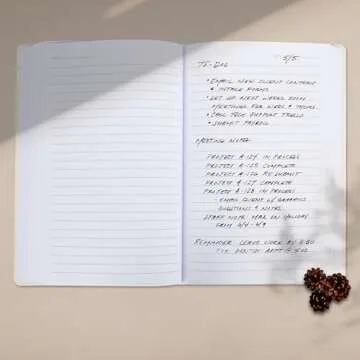 5/5
TO-DOS
• EMAIL NEW CLIENT CONTRACT
& INTAKE FORMS
• SET UP NEXT WEEKS ZOOM
MEETINGS FOR WEDS & THURS.
• CALL TECH SUPPORT
• SUBMIT PAYROLL
MEETING NOTES
PROJECT A-124 IN PROCESS
PROJECT A-125 COMPLETE
PROJECT A-126 RESUBMIT
PROJECT A-127 COMPLETE
PROJECT A-128 IN PROCESS
- EMAIL CLIENT W/ GRAPHICS
QUESTIONS & NOTES.
STAFF NOTE: MAX ON HOLIDAY
FROM
REMINDER: LEAVE WORK BY
FOR DENTIST APPT @